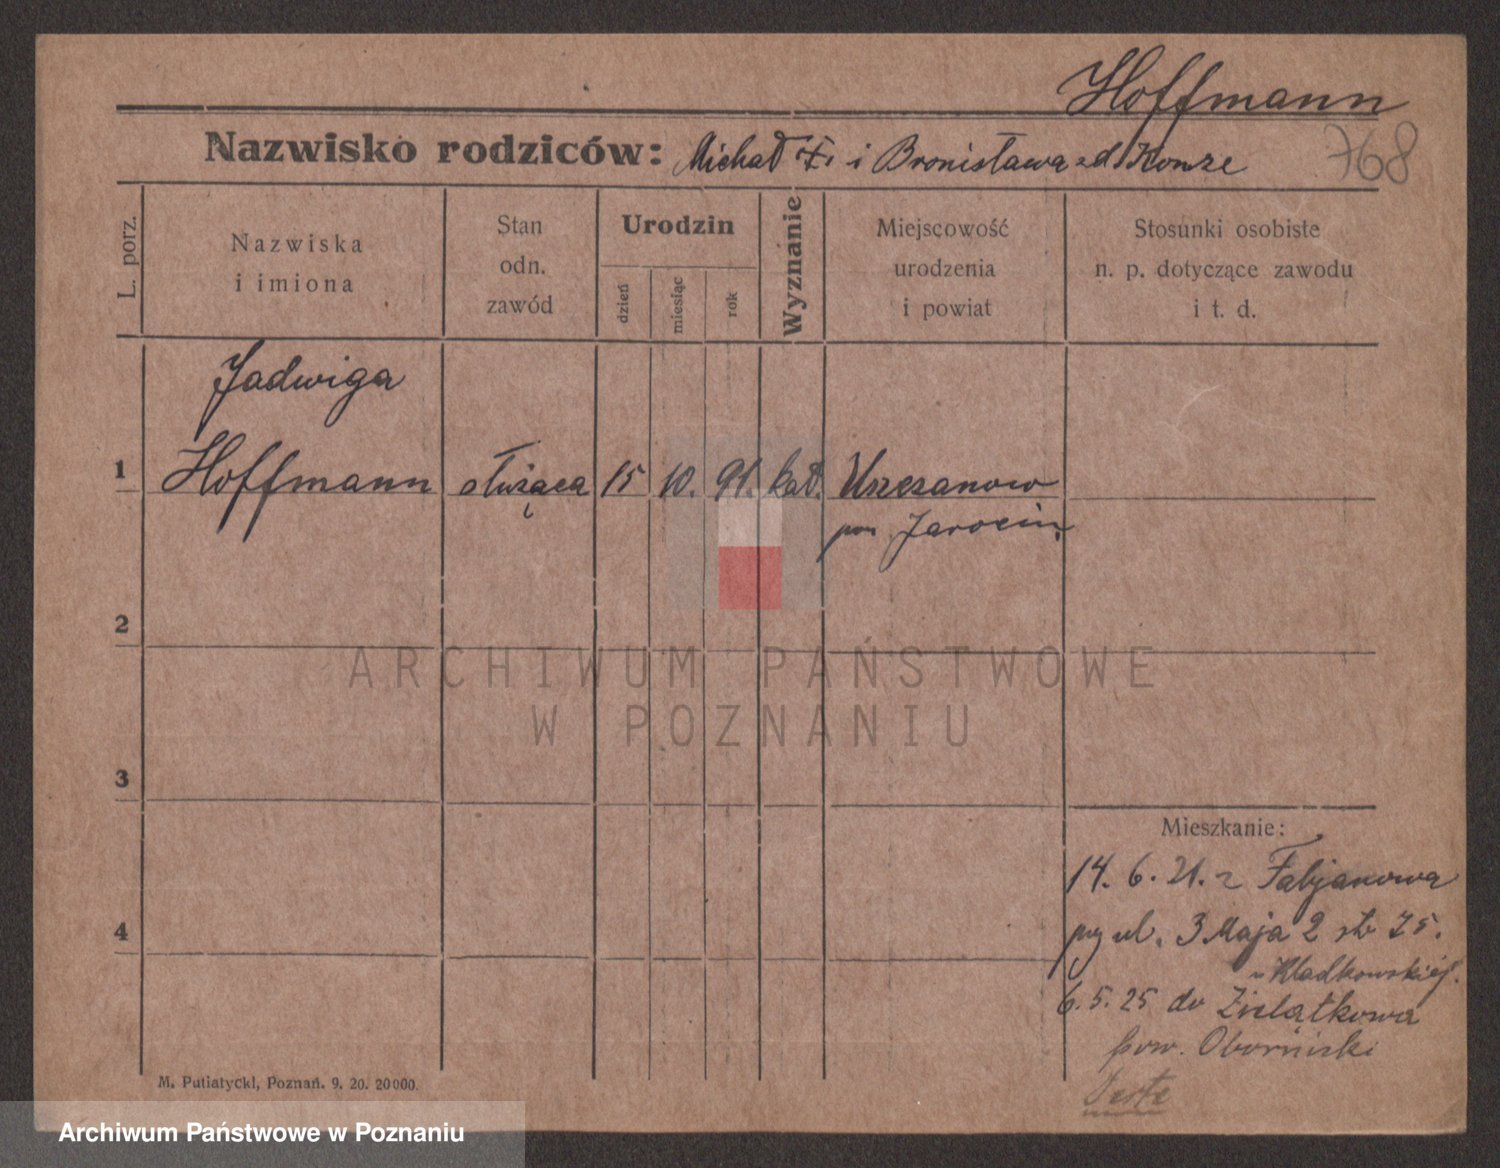 Hoffmann
Nazwisko rodziców: Michał i Bronisława zd Konze
768
L. porz.
Nazwiska
i imiona
Stan
odn.
zawód
Urodzin
dzień
miesiąc
rok
Wyznanie
Miejscowość
urodzenia
i powiat
Stosunki osobiste
n. p. dotyczące zawodu
i t. d.
Jadwiga
1 Hoffmann służąca 15 10. 91. kat. Uszczanow
pow Jarocin
2
ARCHIWUM PAŃSTWOWE
W POZNANIU
3
Mieszkanie:
14. 6. 21. z Fabjanowa
4
przy ul. 3 Maja 2 75.
u Kladkowskiej.
6. 5. 25 do Zielątkowa
pow. Obornicki
M. Putiatycki, Poznań. 9. 20. 20000.
Archiwum Państwowe w Poznaniu